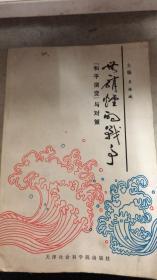 主编 王海波
世硝烟的战争
“和平演变”与对策
天津社会科学院出版社